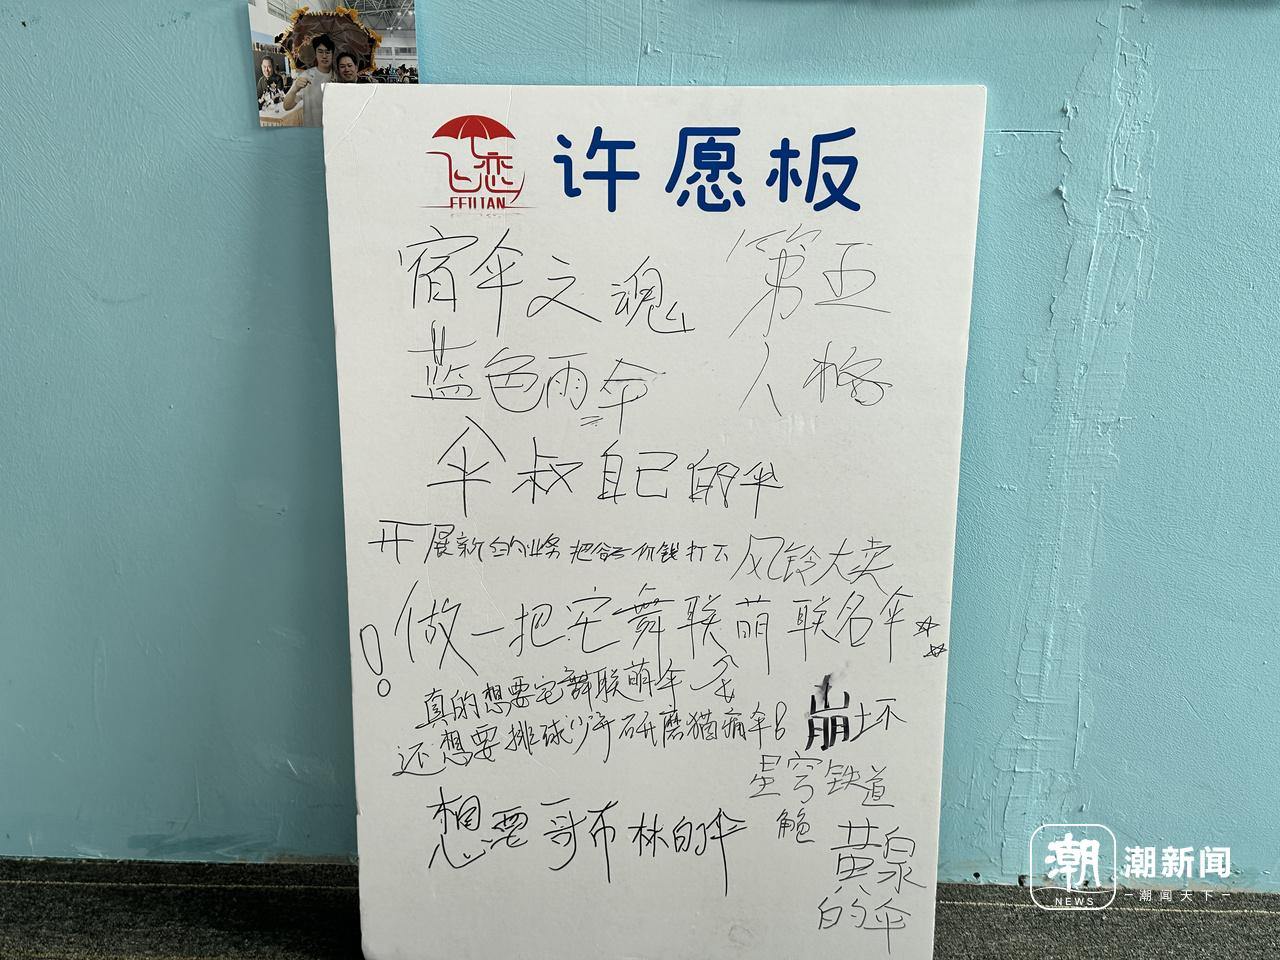 飞恋
FEILIAN
许愿板
宿伞之魂
第五
人格
蓝色雨伞
伞叔自己的伞
开展新的业务 把谷子价钱打下
风铃大卖
做一把宅舞联萌联名伞
!
真的想要宅舞联萌伞
还想要排球少年研磨猫痛伞
崩坏
星穹铁道
黄泉
的伞
想要哥布林的伞
潮
NEWS
潮新闻
潮闻天下